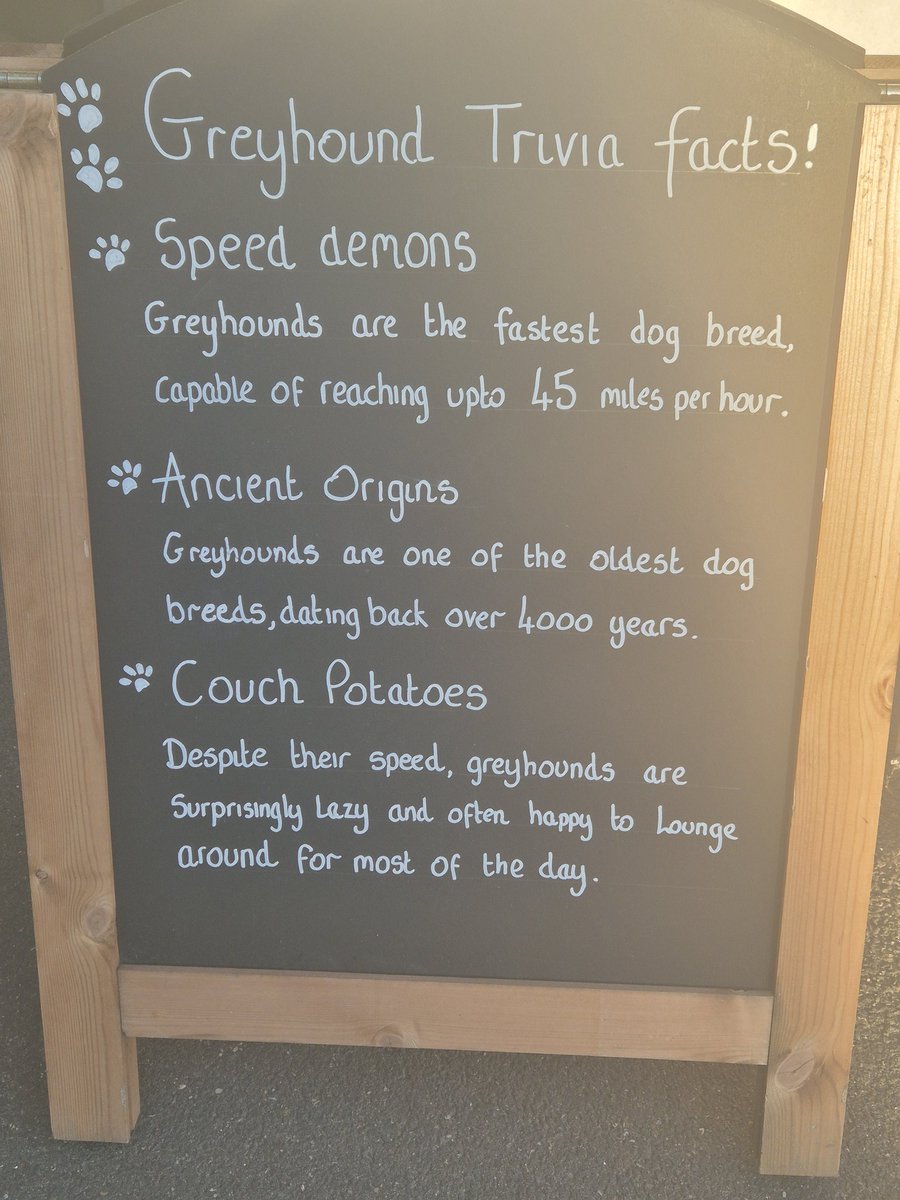 Greyhound Trivia facts!
Speed demons
Greyhounds are the fastest dog breed,
capable of reaching upto 45 miles per hour.
Ancient Origins
Greyhounds are one of the oldest dog
breeds, dating back over 4000 years.
Couch Potatoes
Despite their speed, greyhounds are
surprisingly lazy and often happy to lounge
around for most of the day.